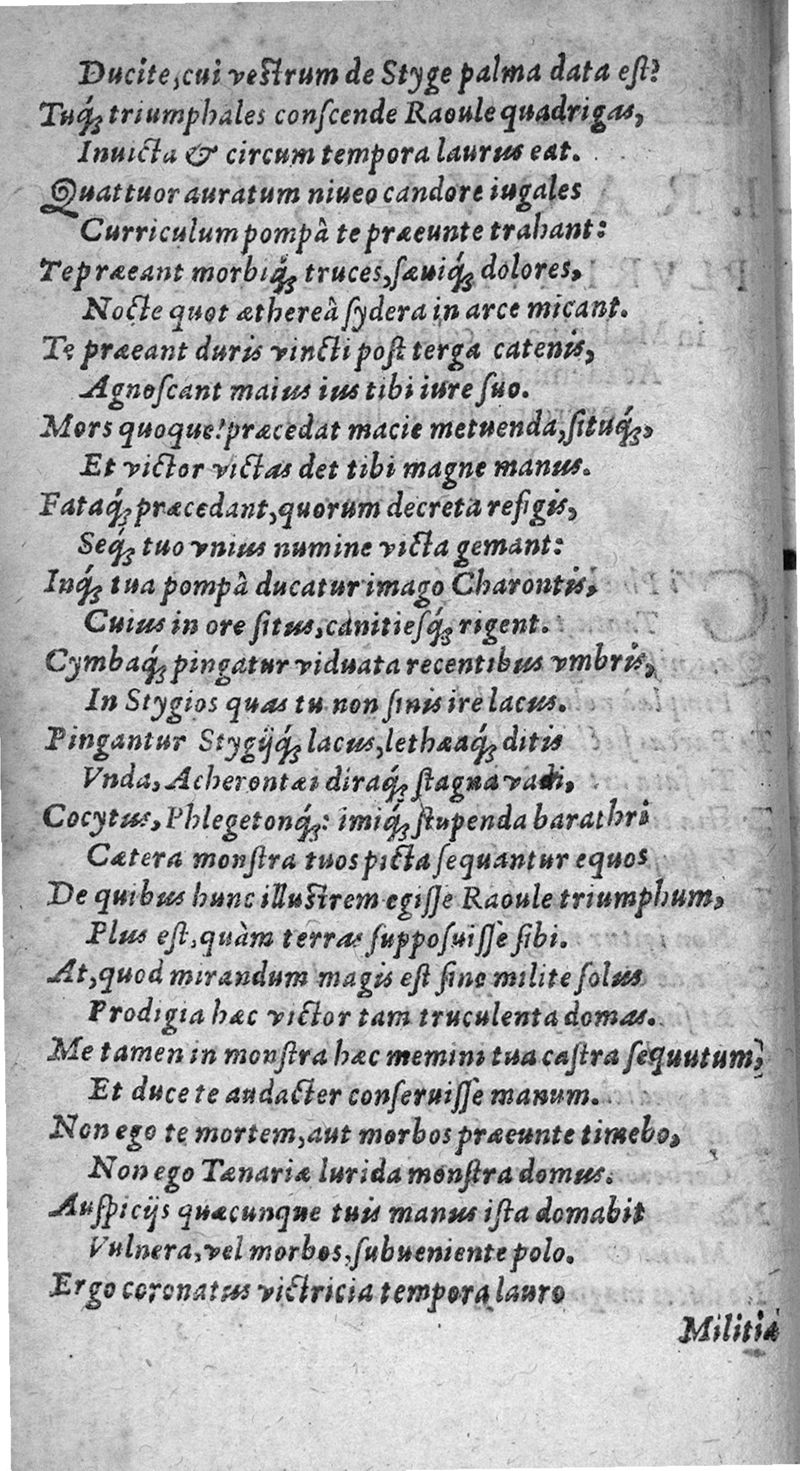 Ducite, cui veſtrum de Styge palma data eſt?
Tuq́; triumphales conſcende Raoule quadrigas,
Inuicta & circum tempora laurus eat.
Quattuor auratum niueo candore iugales
Curriculum pompâ te præeunte trahant:
Te præeant morbiq́; truces, ſæuiq́; dolores,
Nocte quot æthereâ ſydera in arce micant.
Te præeant duris vincti poſt terga catenis,
Agnoſcant maius ius tibi iure ſuo.
Mors quoque! præcedat macie metuenda, ſituq́;,
Et victor victas det tibi magne manus.
Fataq́; præcedant, quorum decreta refigis,
Seq́; tuo vnius numine victa gemant:
Inq́; tua pompâ ducatur imago Charontis,
Cuius in ore ſitus, canitieſq́; rigent.
Cymbaq́; pingatur viduata recentibus vmbris,
In Stygios quas tu non ſinis ire lacus.
Pingantur Stygijq́; lacus, lethæaq́; ditis
Vnda, Acherontæi diraq́; ſtagna vadi,
Cocytus, Phlegetonq́;: imiq́; ſtupenda barathri
Cætera monſtra tuos picta ſequantur equos
De quibus hunc illuſtrem egiſſe Raoule triumphum,
Plus eſt, quàm terras ſuppoſuiſſe ſibi.
At, quod mirandum magis eſt ſine milite ſolus
Prodigia hæc victor tam truculenta domas.
Me tamen in monſtra hæc memini tua caſtra ſequutum,
Et duce te audacter conſeruiſſe manum.
Non ego te mortem, aut morbos præeunte timebo,
Non ego Tænariæ lurida monſtra domus.
Auſpicijs quæcunque tuis manus iſta domabit
Vulnera, vel morbos, ſubueniente polo.
Ergo coronatus victricia tempora lauro
Militiæ